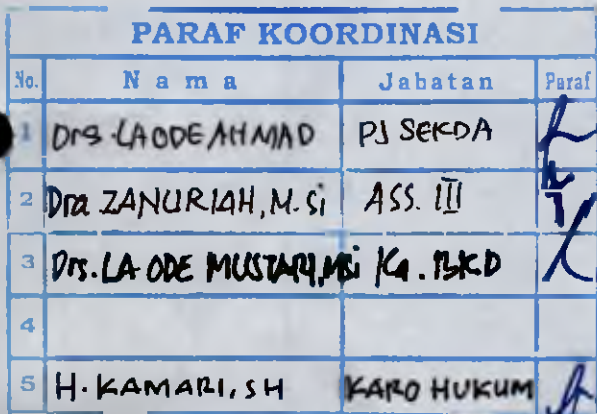 PARAF KOORDINASI
No. Nama Jabatan Paraf
1 Drs. LA ODE AHMAD PJ SEKDA
2 Dra ZANURIAH, M. Si ASS. III
3 Drs. LA ODE MUSTARI, MSi Ka. BKD
4
5 H. KAMARI, SH KARO HUKUM